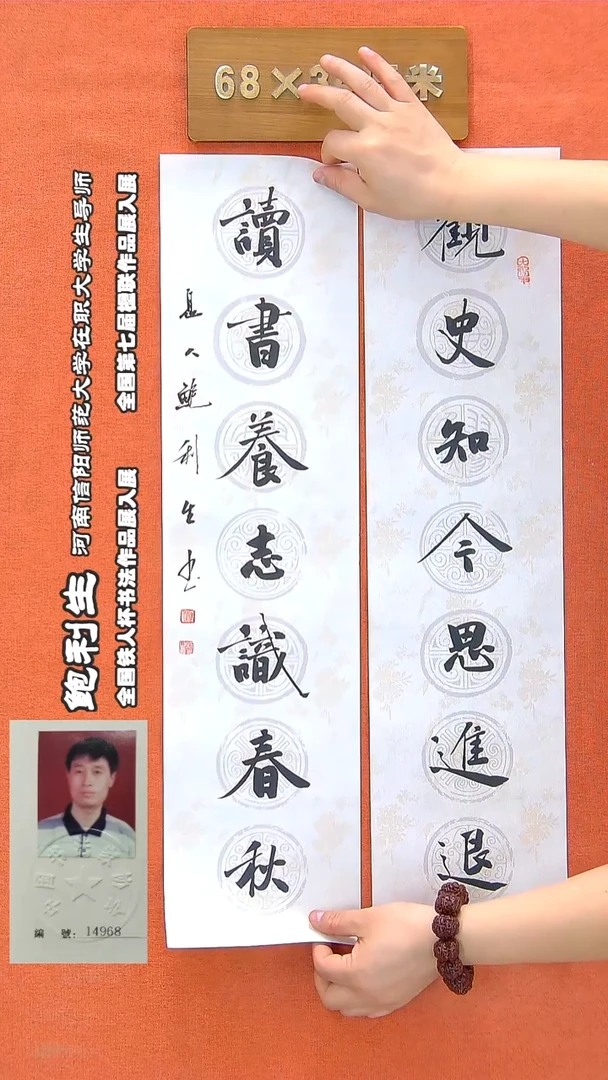 68×3 米
觀史知今思進退
讀書養志識春秋
人鮑利生书
鲍利生 河南信阳师范大学在职大学生导师
全国铁人杯书法作品展入展 全国第七届楹联作品展入展
編 號：14968